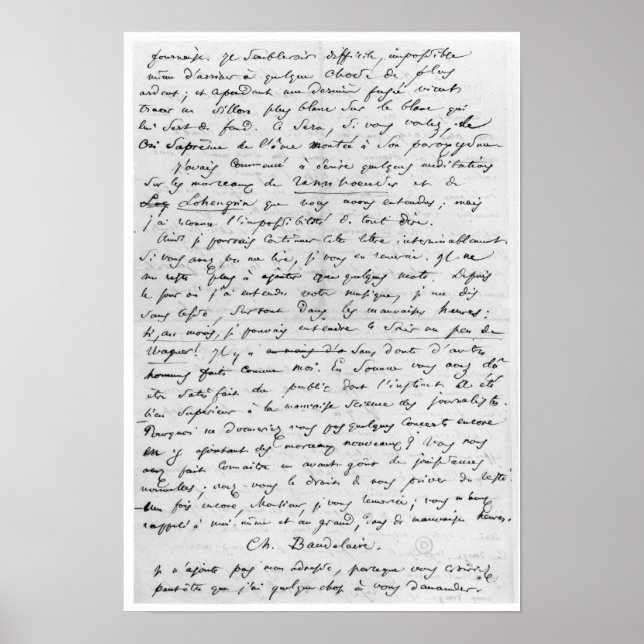 fournaise. Il semblerait difficile, impossible
même d'arriver à quelque chose de plus
ardent; et cependant une dernière fusée vient
tracer un sillon plus blanc sur le blanc qui
lui sert de fond. Ce sera, si vous voulez, le
cri suprême de l'âme montée à son paroxysme.
J'avais commencé à écrire quelques méditations
sur les morceaux de Tannhoeuser et de
Lohengrin que nous avons entendus; mais
j'ai reconnu l'impossibilité de tout dire.
Ainsi je pourrais continuer cette lettre interminablement.
Si vous avez pu me lire, je vous en remercie. Il ne
me reste plus à ajouter que quelques mots. Depuis
le jour où j'ai entendu votre musique, je me dis
sans cesse, surtout dans les mauvaises heures:
Si, au moins, je pouvais entendre ce soir un peu de
Wagner! Il y a sans doute d'autres
hommes faits comme moi. En somme vous avez dû
être satisfait du public dont l'instinct a été
bien supérieur à la mauvaise science des journalistes.
Pourquoi ne donneriez vous pas quelques concerts encore
en y ajoutant des morceaux nouveaux? Vous nous
avez fait connaître un avant-goût de jouissances
nouvelles; avez-vous le droit de nous priver du reste?
- Une fois encore, Monsieur, je vous remercie; vous m'avez
rappelé à moi-même et au grand, dans de mauvaises heures.
Ch. Baudelaire.
Je n'ajoute pas mon adresse, parceque vous croiriez
peut-être que j'ai quelque chose à vous demander.